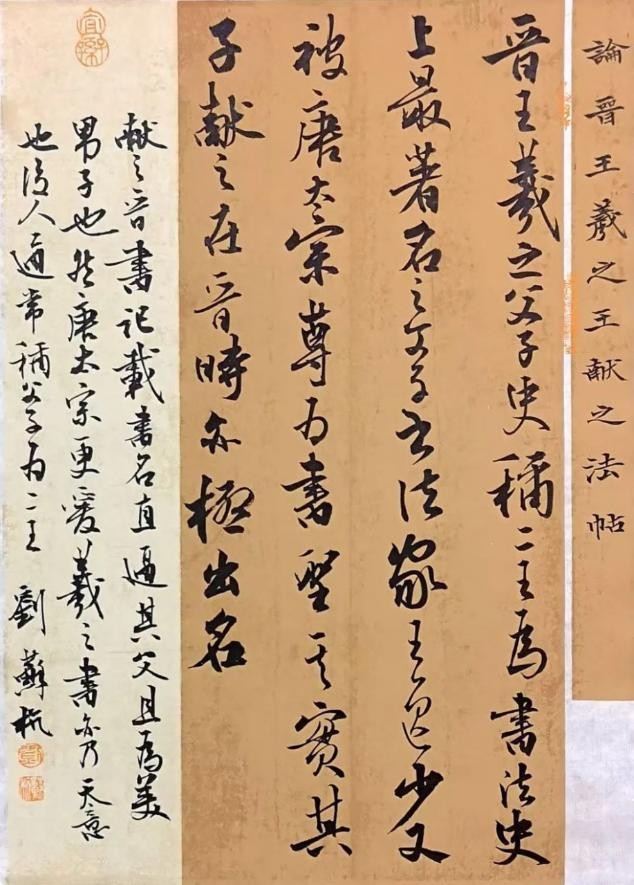 論晉王羲之王献之法帖
晉王羲之父子史稱二王為書法史
上最著名之父子书法家王逸少又
被唐太宗尊为書聖其實其
子献之在晉時亦極出名
献之晉書記載書名直逼其父且為美
男子也然唐太宗更愛羲之書亦乃天意
也後人通常稱父子为二王 劉蘇杭